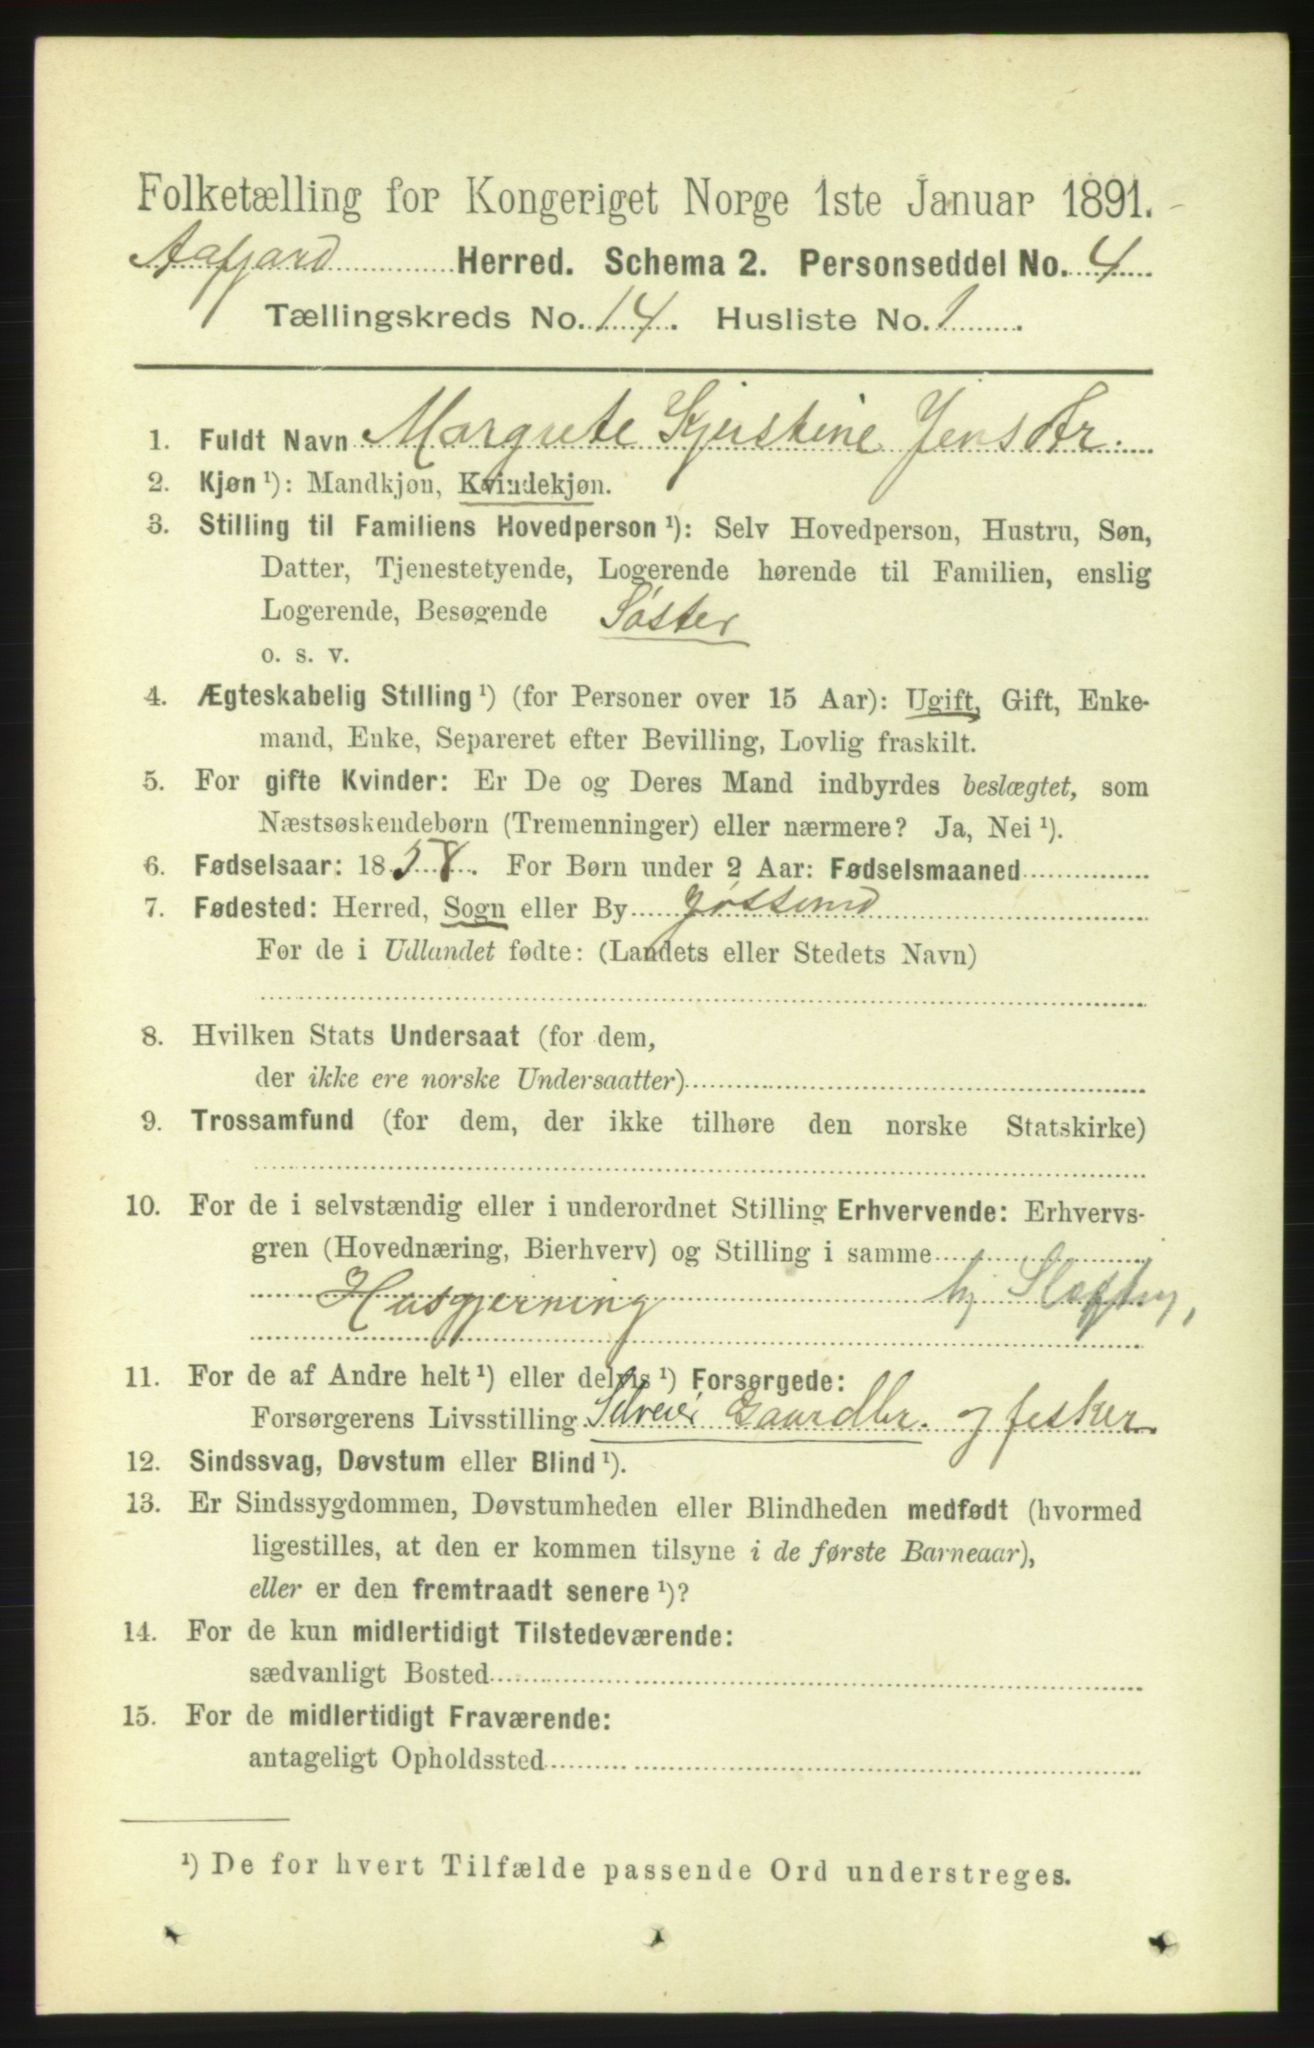 Folketælling for Kongeriget Norge 1ste Januar 1891.
Aafjord Herred. Schema 2. Personseddel No. 4
Tællingskreds No. 14. Husliste No. 1
1. Fuldt Navn Margrete Kjerstine Jensdtr.
2. Kjøn ¹): Mandkjøn, Kvindekjøn.
3. Stilling til Familiens Hovedperson ¹): Selv Hovedperson, Hustru, Søn,
Datter, Tjenestetyende, Logerende hørende til Familien, enslig
Logerende, Besøgende Søster
o. s. v.
4. Ægteskabelig Stilling ¹) (for Personer over 15 Aar): Ugift, Gift, Enke-
mand, Enke, Separeret efter Bevilling, Lovlig fraskilt.
5. For gifte Kvinder: Er De og Deres Mand indbyrdes beslægtet, som
Næstsøskendebørn (Tremenninger) eller nærmere? Ja, Nei ¹).
6. Fødselsaar: 1858. For Børn under 2 Aar: Fødselsmaaned
7. Fødested: Herred, Sogn eller By Jøssund
For de i Udlandet fødte: (Landets eller Stedets Navn)
8. Hvilken Stats Undersaat (for dem,
der ikke ere norske Undersaatter)
9. Trossamfund (for dem, der ikke tilhøre den norske Statskirke)
10. For de i selvstændig eller i underordnet Stilling Erhvervende: Erhvervs-
gren (Hovednæring, Bierhverv) og Stilling i samme
Husgjerning hj
11. For de af Andre helt ¹) eller delvis ¹) Forsørgede:
Forsørgerens Livsstilling Selveier Gaardbr. og fisker
12. Sindssvag, Døvstum eller Blind ¹).
13. Er Sindssygdommen, Døvstumheden eller Blindheden medfødt (hvormed
ligestilles, at den er kommen tilsyne i de første Barneaar),
eller er den fremtraadt senere ¹)?
14. For de kun midlertidigt Tilstedeværende:
sædvanligt Bosted
15. For de midlertidigt Fraværende:
antageligt Opholdssted
¹) De for hvert Tilfælde passende Ord understreges.